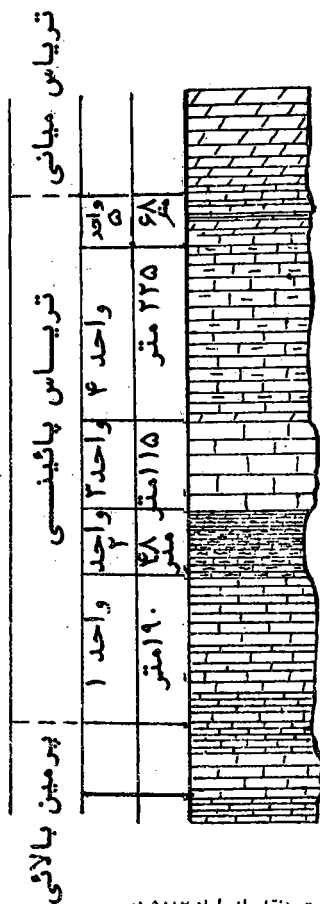 تریاس میانی
تریاس پائینی
پرمین بالائی
واحد ۵
۶۸ متر
واحد ۴
۲۲۵ متر
واحد ۳
۱۱۵ متر
واحد ۲
۴۸ متر
واحد ۱
۱۹۰ متر